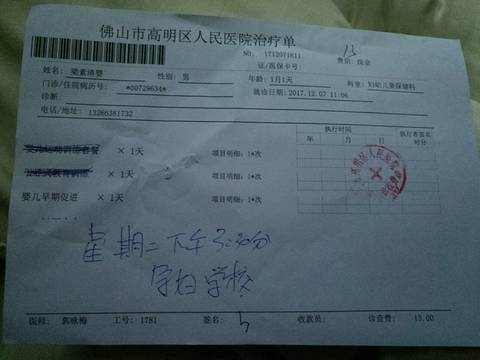 佛山市高明区人民医院治疗单
NO: 1712071811
费别: 现金
13
证/医保卡号:
姓名: 梁素清婴 性别: 男 年龄: 1月1天 科室: 妇幼儿童保健科
门诊/住院病历号: *00729634* 就诊日期: 2017.12.07 11:06
诊断:
电话/地址: 13286381732
执行时间 执行者签名
年 月 日 时分
× 1天 项目明细: 1*次
× 1天 项目明细: 1*次
婴儿早期促进 × 1天 项目明细: 1*次
星期二下午3:30分
孕妇学校
医师: 郭咏梅 工号: 1781 签名: 收款员: 诊查费: 13.00